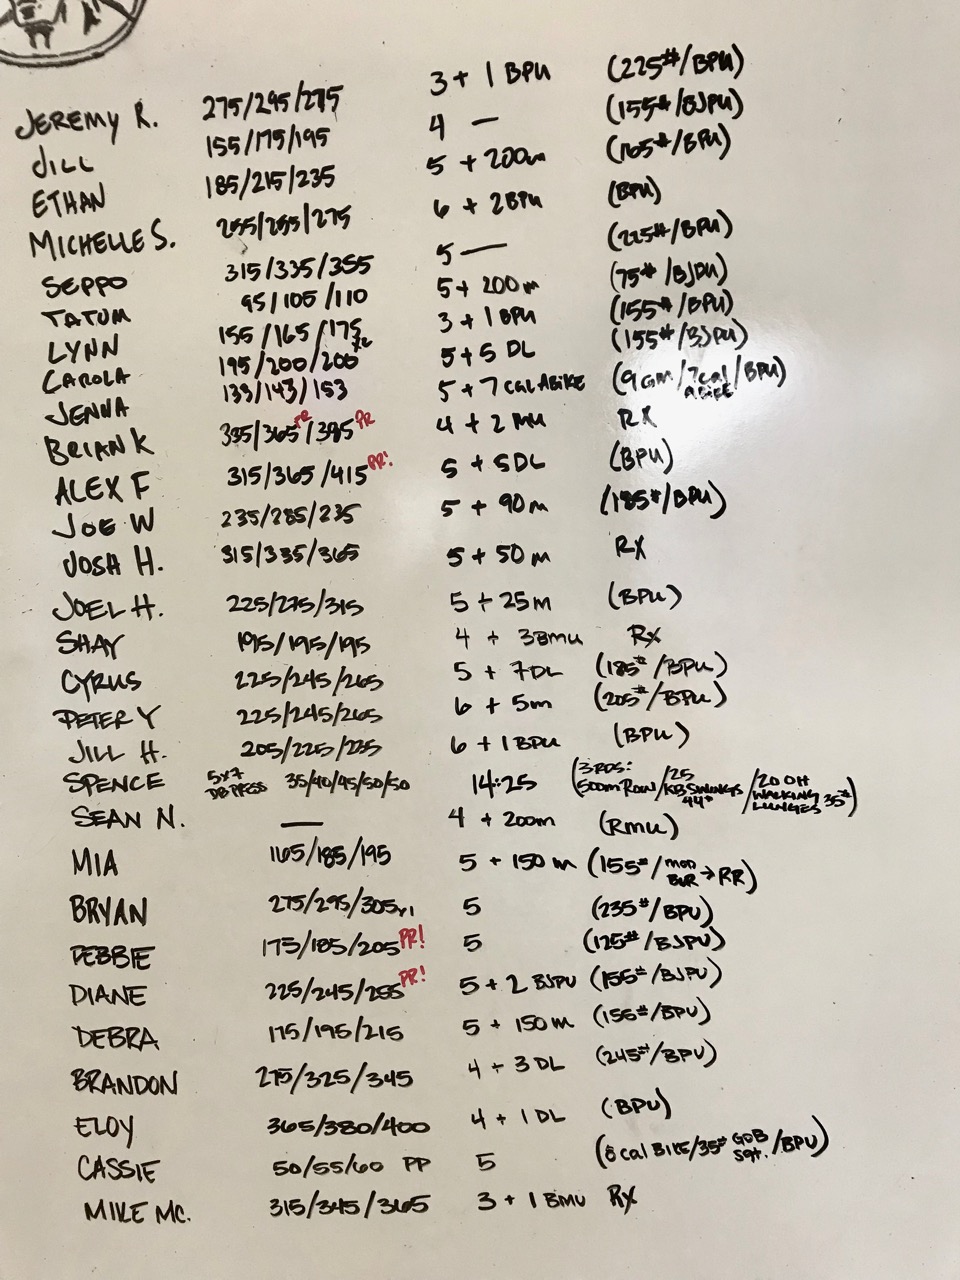 JEREMY R. 275/295/275 3 + 1 BPU (225#/BPU)
JILL 155/175/195 4 — (155#/BJPU)
ETHAN 185/215/235 5 + 200m (165#/BPU)
MICHELLE S. 255/255/275 6 + 2BPU (BPU)
SEPPO 315/335/355 5 — (225#/BPU)
TATUM 95/105/110 5 + 200m (75#/BJPU)
LYNN 155/165/175 3 + 1 BPU (155#/BPU)
CAROLA 195/200/200 5 + 5 DL (155#/BJPU)
JENNA 133/143/153 5 + 7 CAL ABIKE (9 GM/7cal ABIKE/BPU)
BRIAN K 335/365 PR/385 PR 4 + 2 MU RX
ALEX F 315/365/415 PR! 5 + 5DL (BPU)
JOE W 235/285/235 5 + 90m (185#/BPU)
JOSH H. 315/335/365 5 + 50m RX
JOEL H. 225/275/315 5 + 25m (BPU)
SHAY 195/195/195 4 + 3BMU Rx
CYRUS 225/245/265 5 + 7DL (185#/BPU)
PETER Y 225/245/265 6 + 5m (205#/BPU)
JILL H. 205/225/235 6 + 1 BPU (BPU)
SPENCE 5x7 DB PRESS 35/40/45/50/50 14:25 (3 RDS: 500m ROW/25 KB SWINGS 44#/20 OH WALKING LUNGES 35#)
SEAN N. — 4 + 200m (RMU)
MIA 165/185/195 5 + 150m (155#/MOD BUR → RR)
BRYAN 275/295/305x1 5 (235#/BPU)
DEBBIE 175/185/205 PR! 5 (125#/BJPU)
DIANE 225/245/255 PR! 5 + 2 BJPU (155#/BJPU)
DEBRA 175/195/215 5 + 150m (155#/BPU)
BRANDON 275/325/345 4 + 3 DL (245#/BPU)
ELOY 365/380/400 4 + 1 DL (BPU)
CASSIE 50/55/60 PP 5 (8 cal BIKE/35# GOB SQT./BPU)
MIKE MC. 315/345/365 3 + 1 BMU Rx